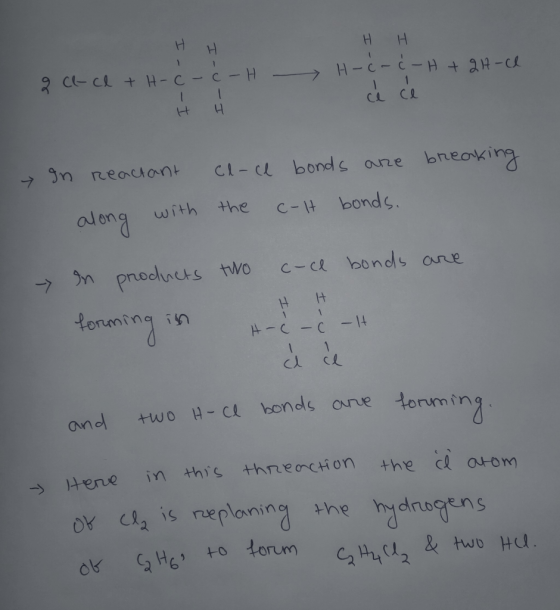 H H H H
2 Cl-Cl + H-C-C-H ⟶ H-C-C-H + 2H-Cl
H H Cl Cl
→ In reactant Cl-Cl bonds are breaking
along with the C-H bonds.
→ In products two C-Cl bonds are
forming in
H H
H-C-C-H
Cl Cl
and two H-Cl bonds are forming.
→ Here in this threaction the cl atom
of Cl₂ is replaning the hydrogens
of C₂H₆, to form C₂H₄Cl₂ & two HCl.